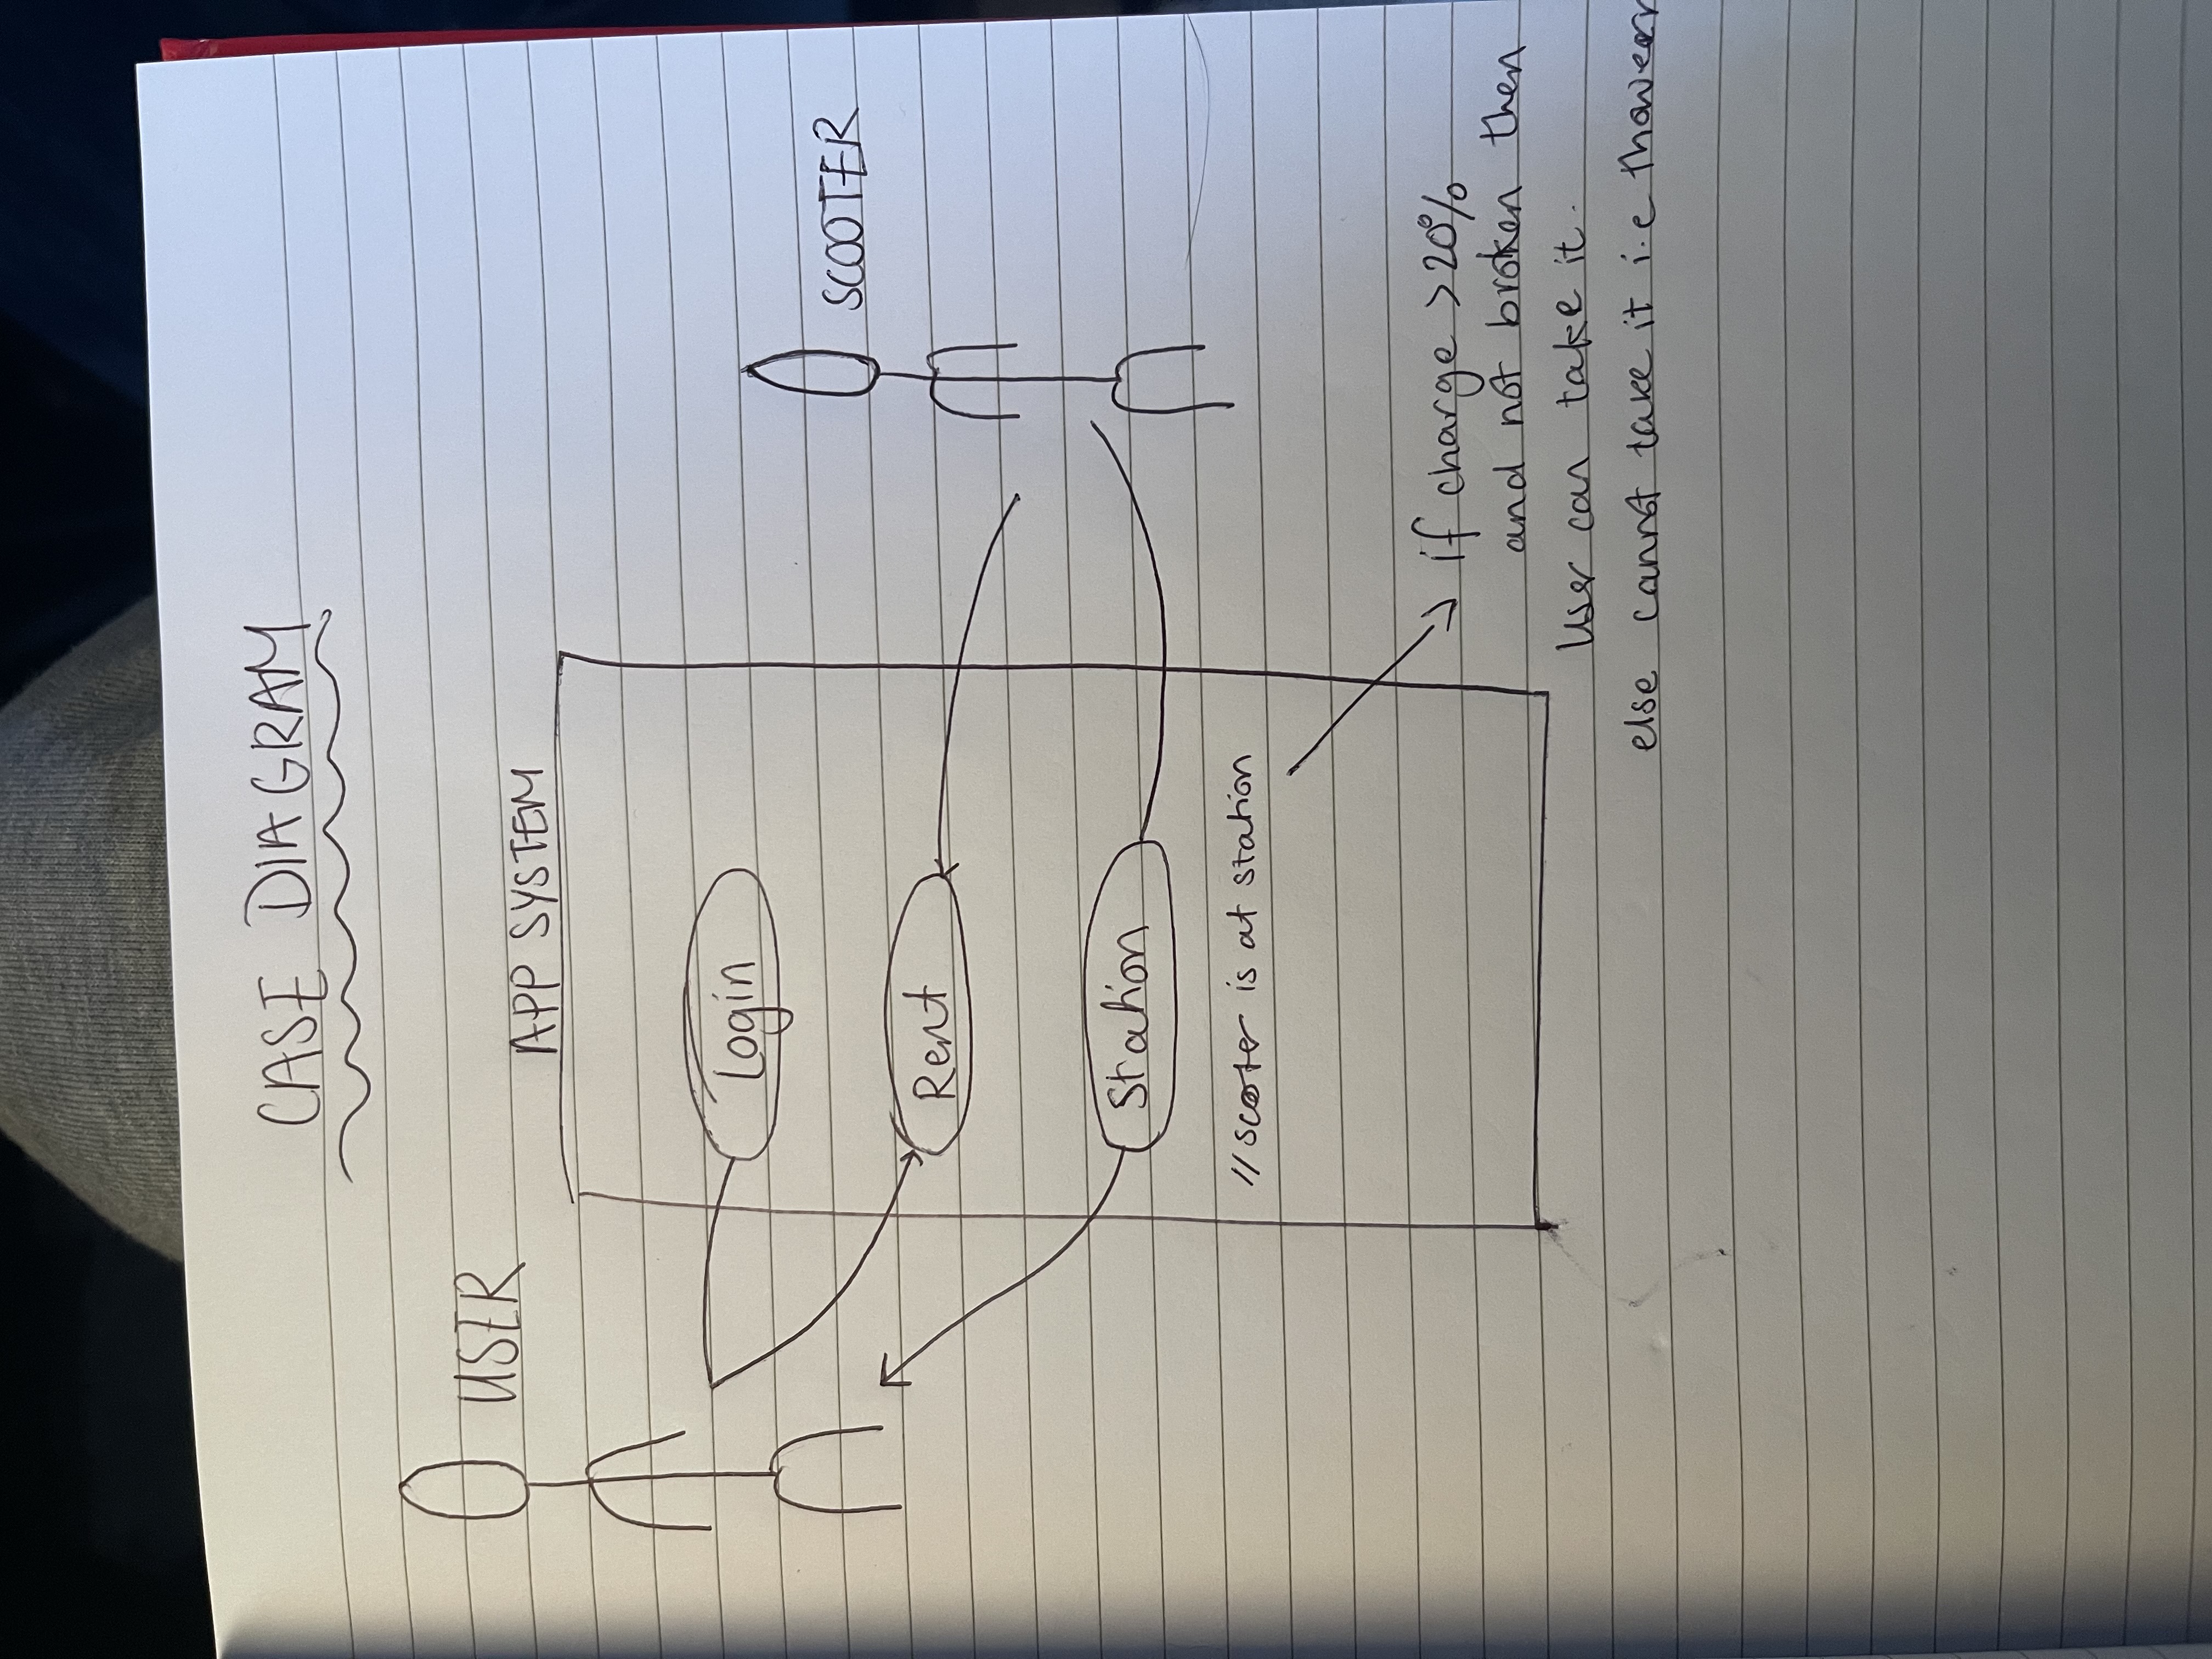 CASE DIAGRAM
USER
APP SYSTEM
Login
SCOOTER
Rent
Station
//scooter is at station
if charge >20%
and not broken then
User can take it.
else cannot take it i.e